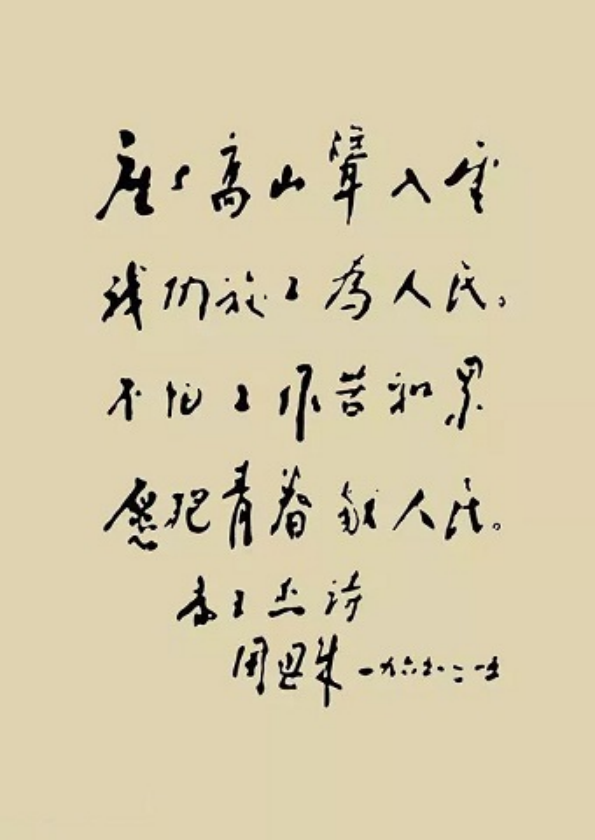 座々高山耸入云
我们施工为人民。
不怕工作苦和累
愿把青春献人民。
李玉杰诗
周恩来 一九六五·二·一五